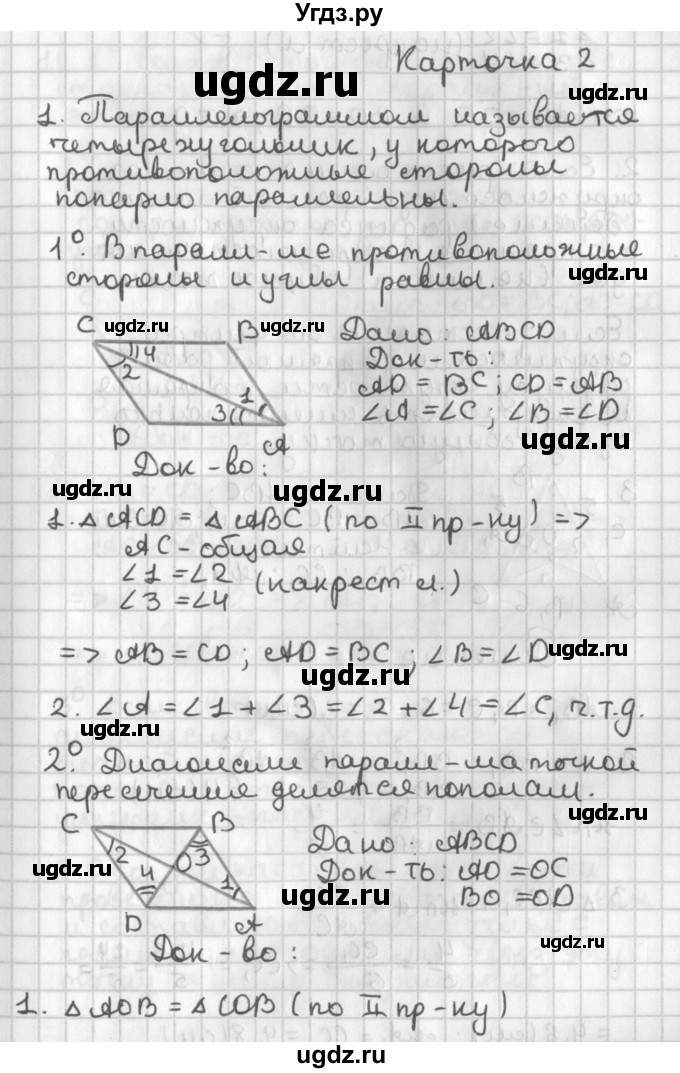 Угдз.ру
Карточка 2
ugdz.ru
1. Параллелограммом называется
ugdz.ru
четырехугольник, у которого
противоположные стороны
ugdz.ru
попарно параллельны.
ugdz.ru
1°. В паралл-ме противоположные
стороны и углы равны.
ugdz.ru
C ugdz.ru B ugdz.ru Дано: ABCD
4 Док-ть:
2 1 AD = BC; CD = AB
3 ∠A = ∠C; ∠B = ∠D
D A ugdz.ru
Док-во:
ugdz.ru ugdz.ru
1. △ ACD = △ ABC (по II пр-ку) =>
AC - общая
∠1 = ∠2 (накрест л.)
∠3 = ∠4
=> AB = CD; AD = BC; ∠B = ∠D ugdz.ru
2. ∠A = ∠1 + ∠3 = ∠2 + ∠4 = ∠C, ч.т.д.
ugdz.ru
2°. Диагонали паралл-ма точкой
пересечения делятся пополам.
ugdz.ru
C B Дано: ABCD
2 O 3 Док-ть: AO = OC
ugdz.ru 4 1 ugdz.ru BO = OD
D A
Док-во: ugdz.ru
1. △ AOB = △ COB (по II пр-ку)
ugdz.ru